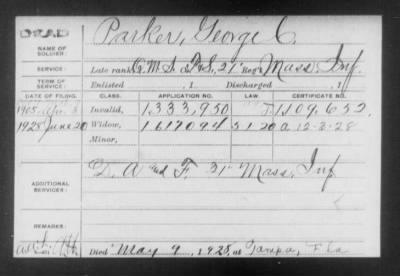 DEAD
Parker, George C.
NAME OF SOLDIER:
SERVICE:
Late rank Q.M.S. 21" Reg't Mass. Inf.
TERM OF SERVICE:
Enlisted , 1 Discharged , 1
DATE OF FILING. CLASS. APPLICATION NO. CERTIFICATE NO.
1905 Apr. 3 Invalid, 1.333,950 1.109.652
1928 June 20 Widow, 1617094 A 12-3-28
Minor,
D, A and F, 31" Mass. Inf
ADDITIONAL SERVICES:
REMARKS:
Died May 9, 1928, at Tampa, Fla